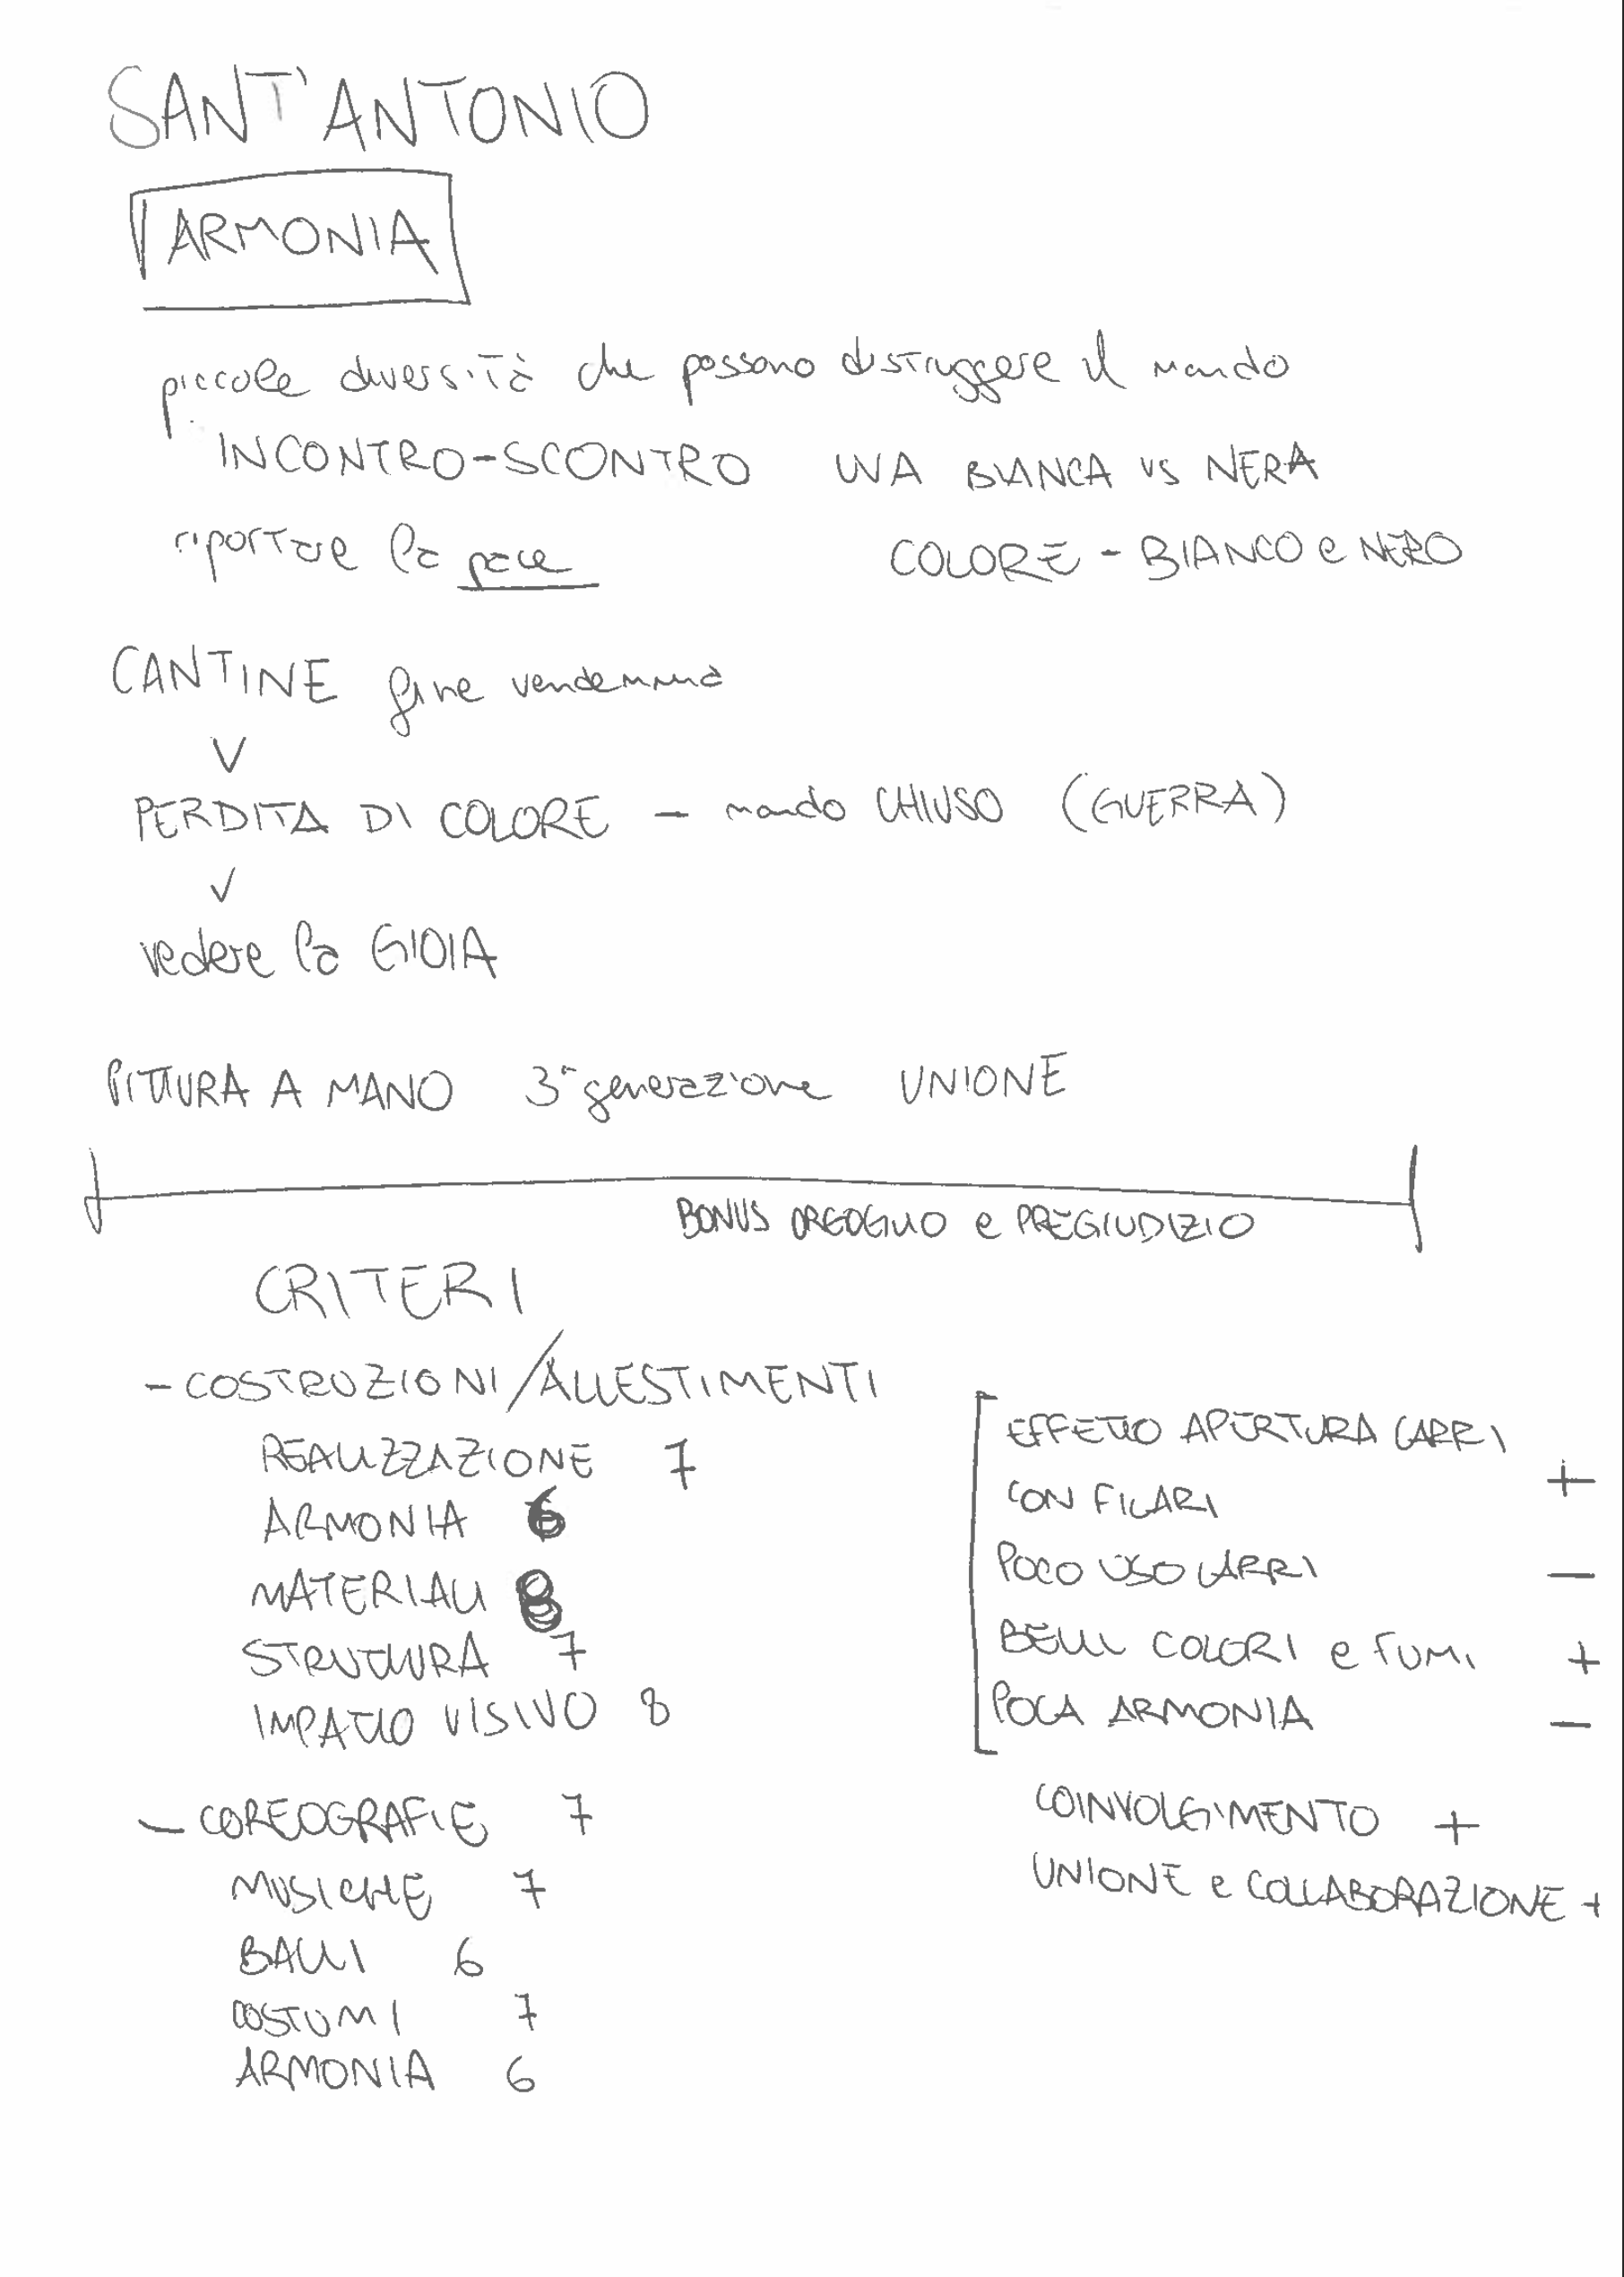 SANT'ANTONIO
ARMONIA
piccole diversità che possono distruggere il mondo
INCONTRO-SCONTRO UVA BIANCA VS NERA
riportare la pace COLORE - BIANCO e NERO
CANTINE fine vendemmia
V
PERDITA DI COLORE - mondo CHIUSO (GUERRA)
V
vedere la GIOIA
PITTURA A MANO 3ª generazione UNIONE
BONUS ORGOGLIO e PREGIUDIZIO
CRITERI
- COSTRUZIONI/ALLESTIMENTI
REALIZZAZIONE 7
ARMONIA 6
MATERIALI 8
STRUTTURA 7
IMPATTO VISIVO 8
- COREOGRAFIE 7
MUSICHE 7
BALLI 6
COSTUMI 7
ARMONIA 6
EFFETTO APERTURA CARRI
CON FILARI +
POCO USO CARRI -
BELLI COLORI e FUMI +
POCA ARMONIA -
COINVOLGIMENTO +
UNIONE e COLLABORAZIONE +